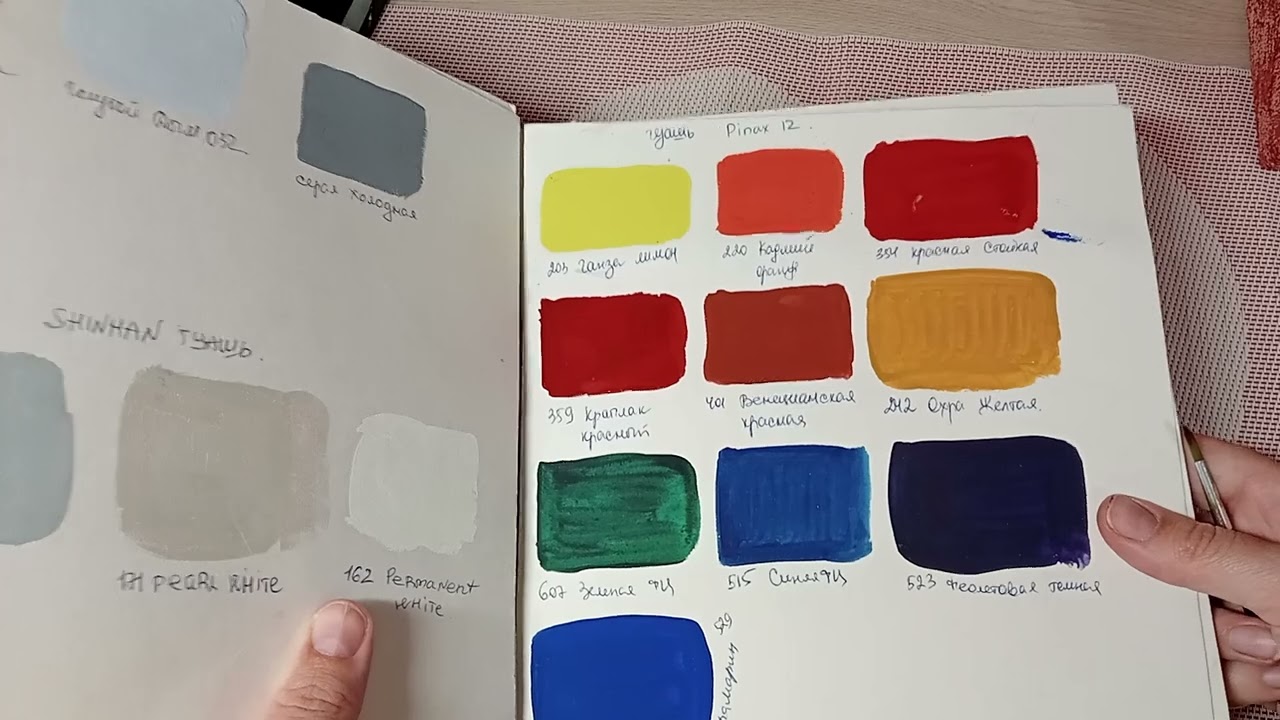 052
серая холодная
SHINHAN ГУАШЬ.
171 PEARL WHITE
162 PERMANENT
WHITE
гуашь Pinax 12.
203 Ганза лимон
220 Кадмий
оранж
354 красная стойкая
359 Краплак
красный
401 Венецианская
красная
242 Охра Желтая.
607 Зеленая ФЦ
515 Синяя ФЦ
523 Фиолетовая темная
529